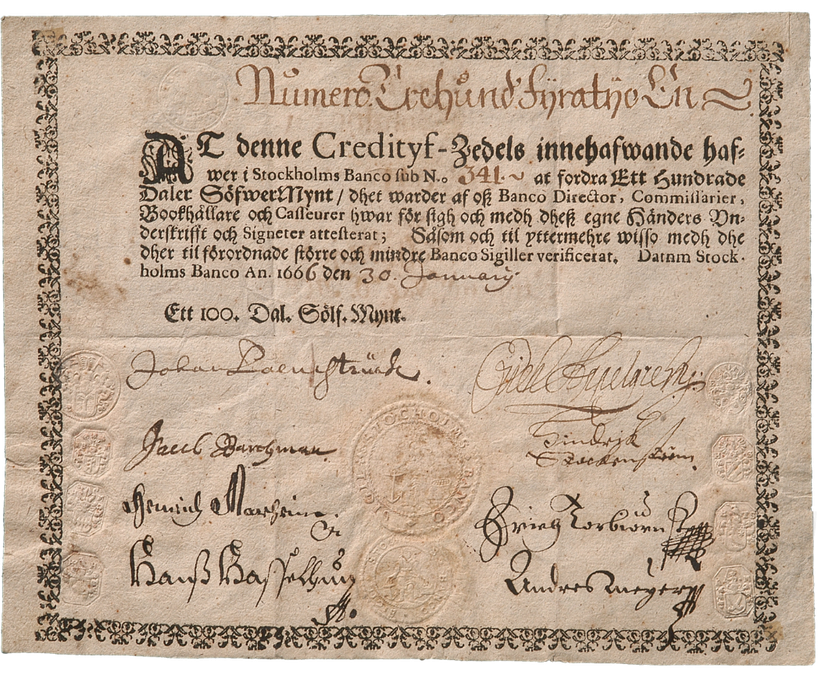 Numero Trehund Fyratyo En
AT denne Credityf-Zedels innehafwande haf-
wer i Stockholms Banco sub N.o 341. at fordra Ett Hundrade
Daler SölfwerMynt / dhet warder af oß Banco Director, Commissarier,
Bookhållare och Casseurer hwar för sigh och medh dheß egne Händers Vn-
derskrifft och Signeter attesterat; Såsom och til yttermehre wisso medh dhe
dher til förordnade större och mindre Banco Sigiller verificerat. Datum Stock-
holms Banco An. 1666 den 30. January
Ett 100. Dal. Sölf. Mynt.
Johan Palmstruck.
Jacob Barchman
Hindrich
Hanß
Andres Meyer
STOCHOLMS BANCO